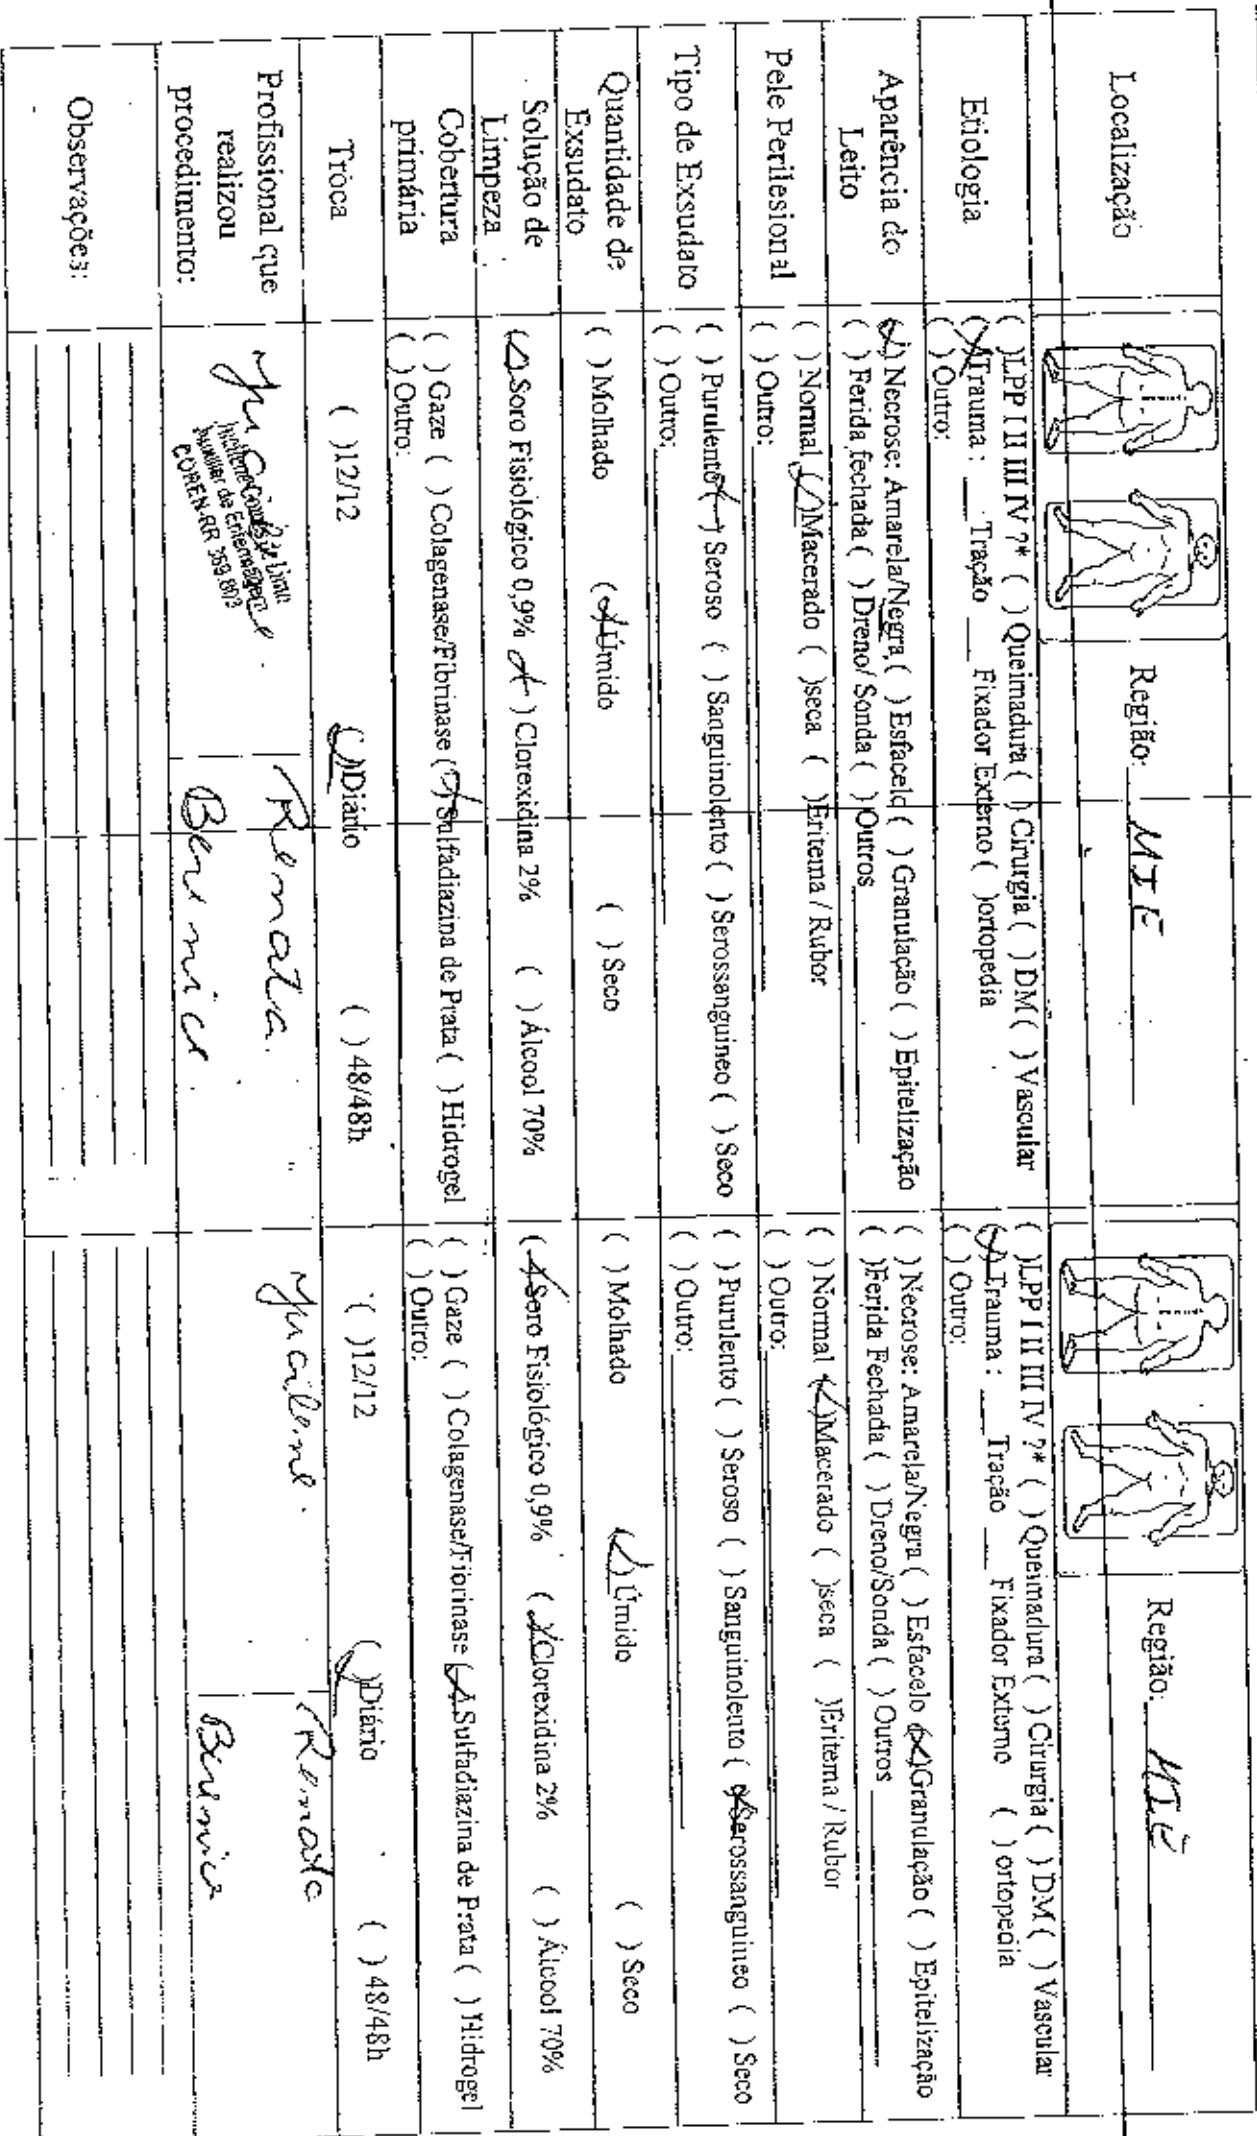 Localização
Região: MIE
Região: MIE
Etiologia
( )LPP I II III IV ?* ( ) Queimadura ( ) Cirurgia ( ) DM ( ) Vascular
(X)Trauma : ___ Tração ___ Fixador Externo ( )ortopedia
( ) Outro:
( )LPP I II III IV ?* ( ) Queimadura ( ) Cirurgia ( ) DM ( ) Vascular
(X)Trauma : ___ Tração ___ Fixador Externo ( ) ortopedia
( ) Outro:
Aparência do
Leito
(X) Necrose: Amarela/Negra ( ) Esfacelo ( ) Granulação ( ) Epitelização
( ) Ferida fechada ( ) Dreno/ Sonda ( ) Outros
( ) Necrose: Amarela/Negra ( ) Esfacelo (X)Granulação ( ) Epitelização
( )Ferida Fechada ( ) Dreno/Sonda ( ) Outros
Pele Perilesional
( ) Normal (X)Macerado ( )seca ( )Eritema / Rubor
( ) Outro:
( ) Normal (X)Macerado ( )seca ( )Eritema / Rubor
( ) Outro:
Tipo de Exsudato
( ) Purulento (X) Seroso ( ) Sanguinolento ( ) Serossanguineo ( ) Seco
( ) Outro:
( ) Purulento ( ) Seroso ( ) Sanguinolento (X)Serossanguineo ( ) Seco
( ) Outro:
Quantidade de
Exsudato
( ) Molhado (X)Úmido ( ) Seco
( ) Molhado (X)Úmido ( ) Seco
Solução de
Limpeza
(X)Soro Fisiológico 0,9% (X) Clorexidina 2% ( ) Álcool 70%
(X)Soro Fisiológico 0,9% (X)Clorexidina 2% ( ) Álcool 70%
Cobertura
primária
( ) Gaze ( ) Colagenase/Fibrinase (X)Sulfadiazina de Prata ( ) Hidrogel
( ) Outro:
( ) Gaze ( ) Colagenase/Fiorinase (X)Sulfadiazina de Prata ( ) Hidrogel
( ) Outro:
Troca
( )12/12 (X)Diário ( ) 48/48h
( )12/12 (X)Diário ( ) 48/48h
Profissional que
realizou
procedimento:
Auxiliar de Enfermagem
COREN-RR
Renata
Berenice
Jucilene
Renata
Berenice
Observações: